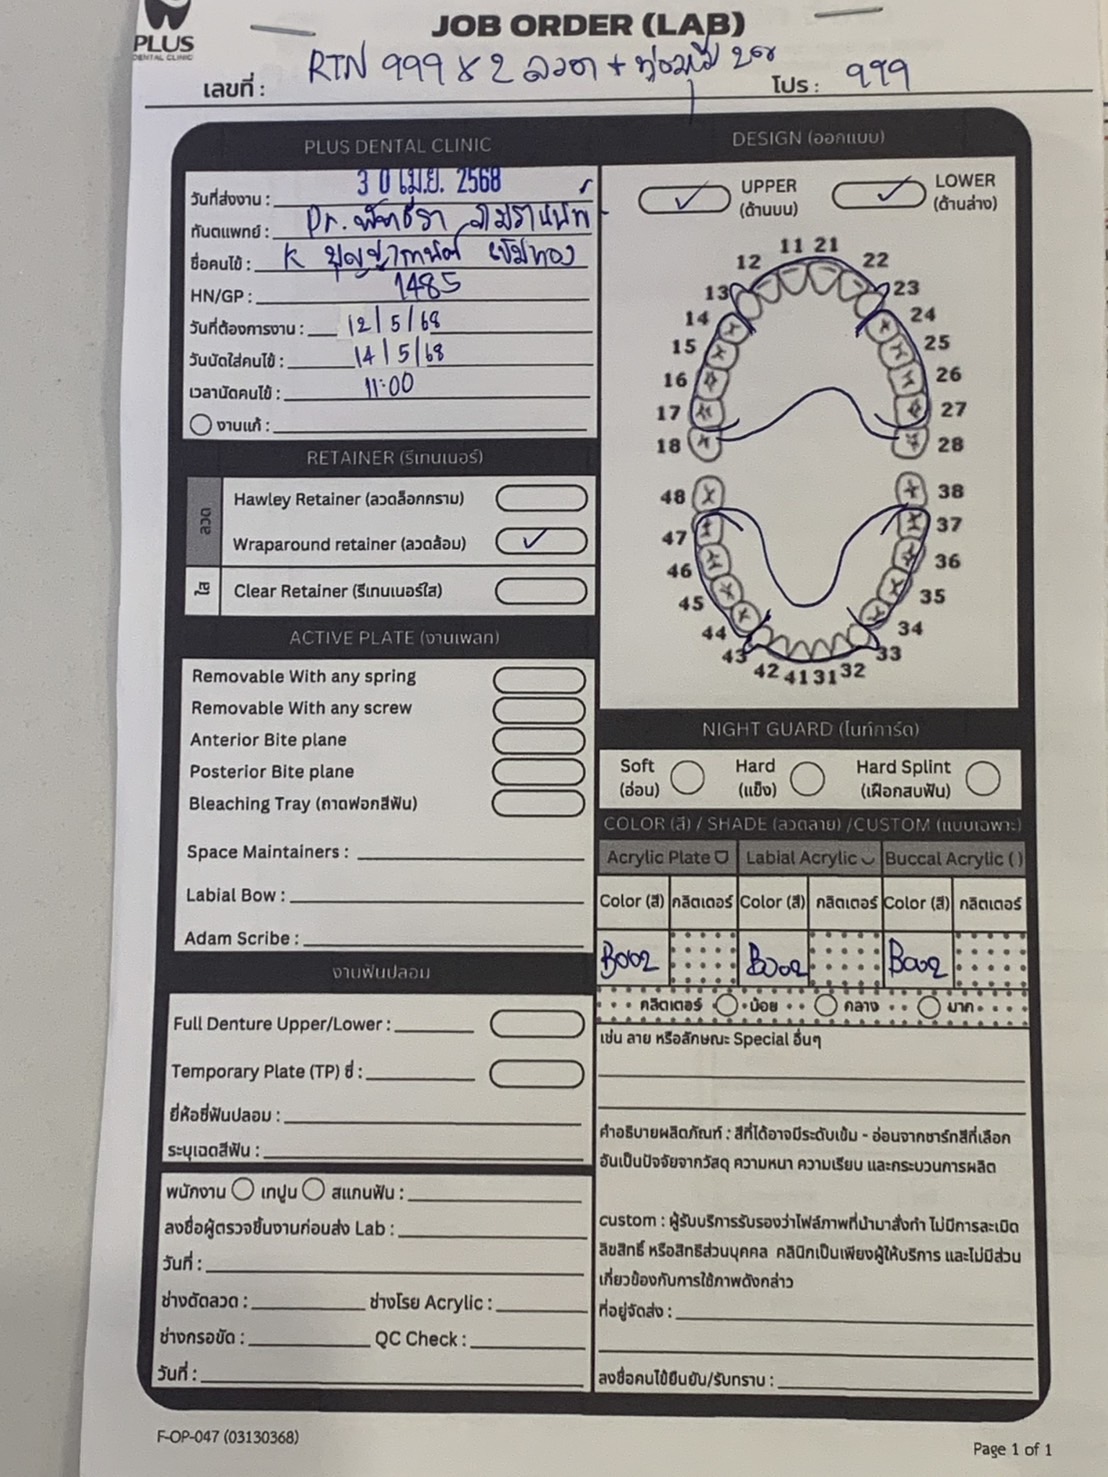 PLUS
DENTAL CLINIC
JOB ORDER (LAB)
เลขที่ : RTN 999 x 2 ลวด +
โปร : 999
PLUS DENTAL CLINIC
วันที่ส่งงาน : 30 เม.ย. 2568
ทันตแพทย์ : Dr.
ชื่อคนไข้ : K
HN/GP : 1485
วันที่ต้องการงาน : 12/5/68
วันนัดใส่คนไข้ : 14/5/68
เวลานัดคนไข้ : 11:00
งานแก้ :
RETAINER (รีเทนเนอร์)
ลวด
Hawley Retainer (ลวดล็อกกราม)
Wraparound retainer (ลวดล้อม)
ใส
Clear Retainer (รีเทนเนอร์ใส)
ACTIVE PLATE (งานเพลท)
Removable With any spring
Removable With any screw
Anterior Bite plane
Posterior Bite plane
Bleaching Tray (ถาดฟอกสีฟัน)
Space Maintainers :
Labial Bow :
Adam Scribe :
งานฟันปลอม
Full Denture Upper/Lower :
Temporary Plate (TP) ซี่ :
ยี่ห้อซี่ฟันปลอม :
ระบุเฉดสีฟัน :
พนักงาน เทปูน สแกนฟัน :
ลงชื่อผู้ตรวจชิ้นงานก่อนส่ง Lab :
วันที่ :
ช่างดัดลวด : ช่างโรย Acrylic :
ช่างกรอขัด : QC Check :
วันที่ :
DESIGN (ออกแบบ)
UPPER LOWER
(ด้านบน) (ด้านล่าง)
11 21
12 22
13 23
14 24
15 25
16 26
17 27
18 28
48 38
47 37
46 36
45 35
44 34
43 33
42 41 31 32
NIGHT GUARD (ไนท์การ์ด)
Soft Hard Hard Splint
(อ่อน) (แข็ง) (เฝือกสบฟัน)
COLOR (สี) / SHADE (ลวดลาย) /CUSTOM (แบบเฉพาะ)
Acrylic Plate Labial Acrylic Buccal Acrylic ( )
Color (สี) กลิตเตอร์ Color (สี) กลิตเตอร์ Color (สี) กลิตเตอร์
B002 B002 B002
กลิตเตอร์ น้อย กลาง มาก
เช่น ลาย หรือลักษณะ Special อื่นๆ
คำอธิบายผลิตภัณฑ์ : สีที่ได้อาจมีระดับเข้ม - อ่อนจากชาร์ทสีที่เลือก
อันเป็นปัจจัยจากวัสดุ ความหนา ความเรียบ และกระบวนการผลิต
custom : ผู้รับบริการรับรองว่าไฟล์ภาพที่นำมาสั่งทำ ไม่มีการละเมิด
ลิขสิทธิ์ หรือสิทธิส่วนบุคคล คลินิกเป็นเพียงผู้ให้บริการ และไม่มีส่วน
เกี่ยวข้องกับการใช้ภาพดังกล่าว
ที่อยู่จัดส่ง :
ลงชื่อคนไข้ยืนยัน/รับทราบ :
F-OP-047 (03130368)
Page 1 of 1